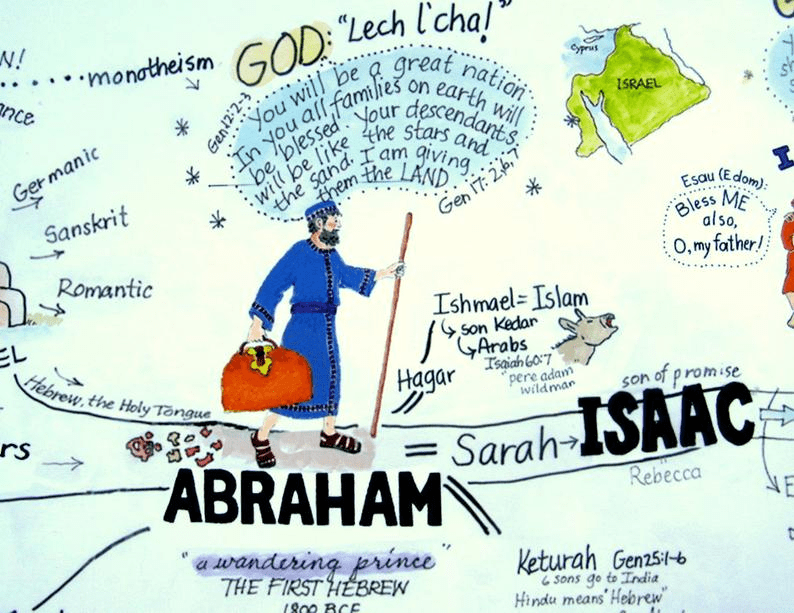 N!
monotheism
ance
Germanic
Sanskrit
Romantic
EL
Hebrew, the Holy Tongue
rs
GOD: "Lech l'cha!"
Gen 12:2-3
You will be a great nation
In you all families on earth will
be blessed. Your descendants
will be like the stars and
the sand. I am giving
them the LAND
Gen 17:2,6,7
Cyprus
ISRAEL
Esau (Edom):
Bless ME
also,
O, my father!
I
Ishmael = Islam
son Kedar
Arabs
Isaiah 60:7
"pere adam
wildman
Hagar
son of promise
= Sarah → ISAAC
Rebecca
E
ABRAHAM
"a wandering prince"
THE FIRST HEBREW
1800 BCE
Keturah Gen 25:1-6
6 sons go to India
Hindu means "Hebrew"